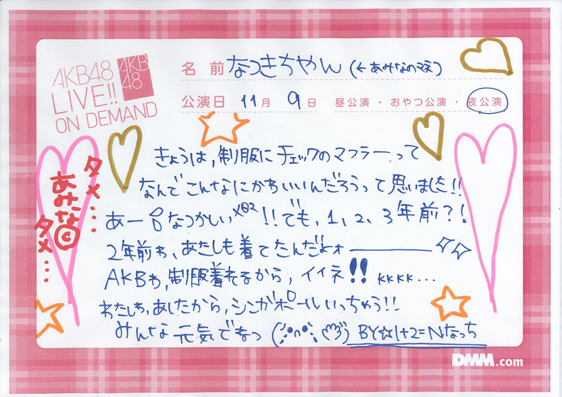 AKB48
LIVE!!
ON DEMAND
AKB
48
名前 なつきちゃん (←あみなのマネ)
公演日 11月 9日 昼公演・おやつ公演・夜公演
きょうは、制服にチェックのマフラーって
なんでこんなにかわいいんだろうって思いました!!
あー なつかしい ×82 !!でも、1、2、3年前?!
2年前も、あたしも着てたんだよォ
AKBも、制服着れるから、イイネ!! KKKK...
わたしも、あしたから、シンガポールいっちゃう!!
みんな元気でねっ BY☆1+2=Nなっち
ダメ...
あみな
©
ダメ...
DMM.com